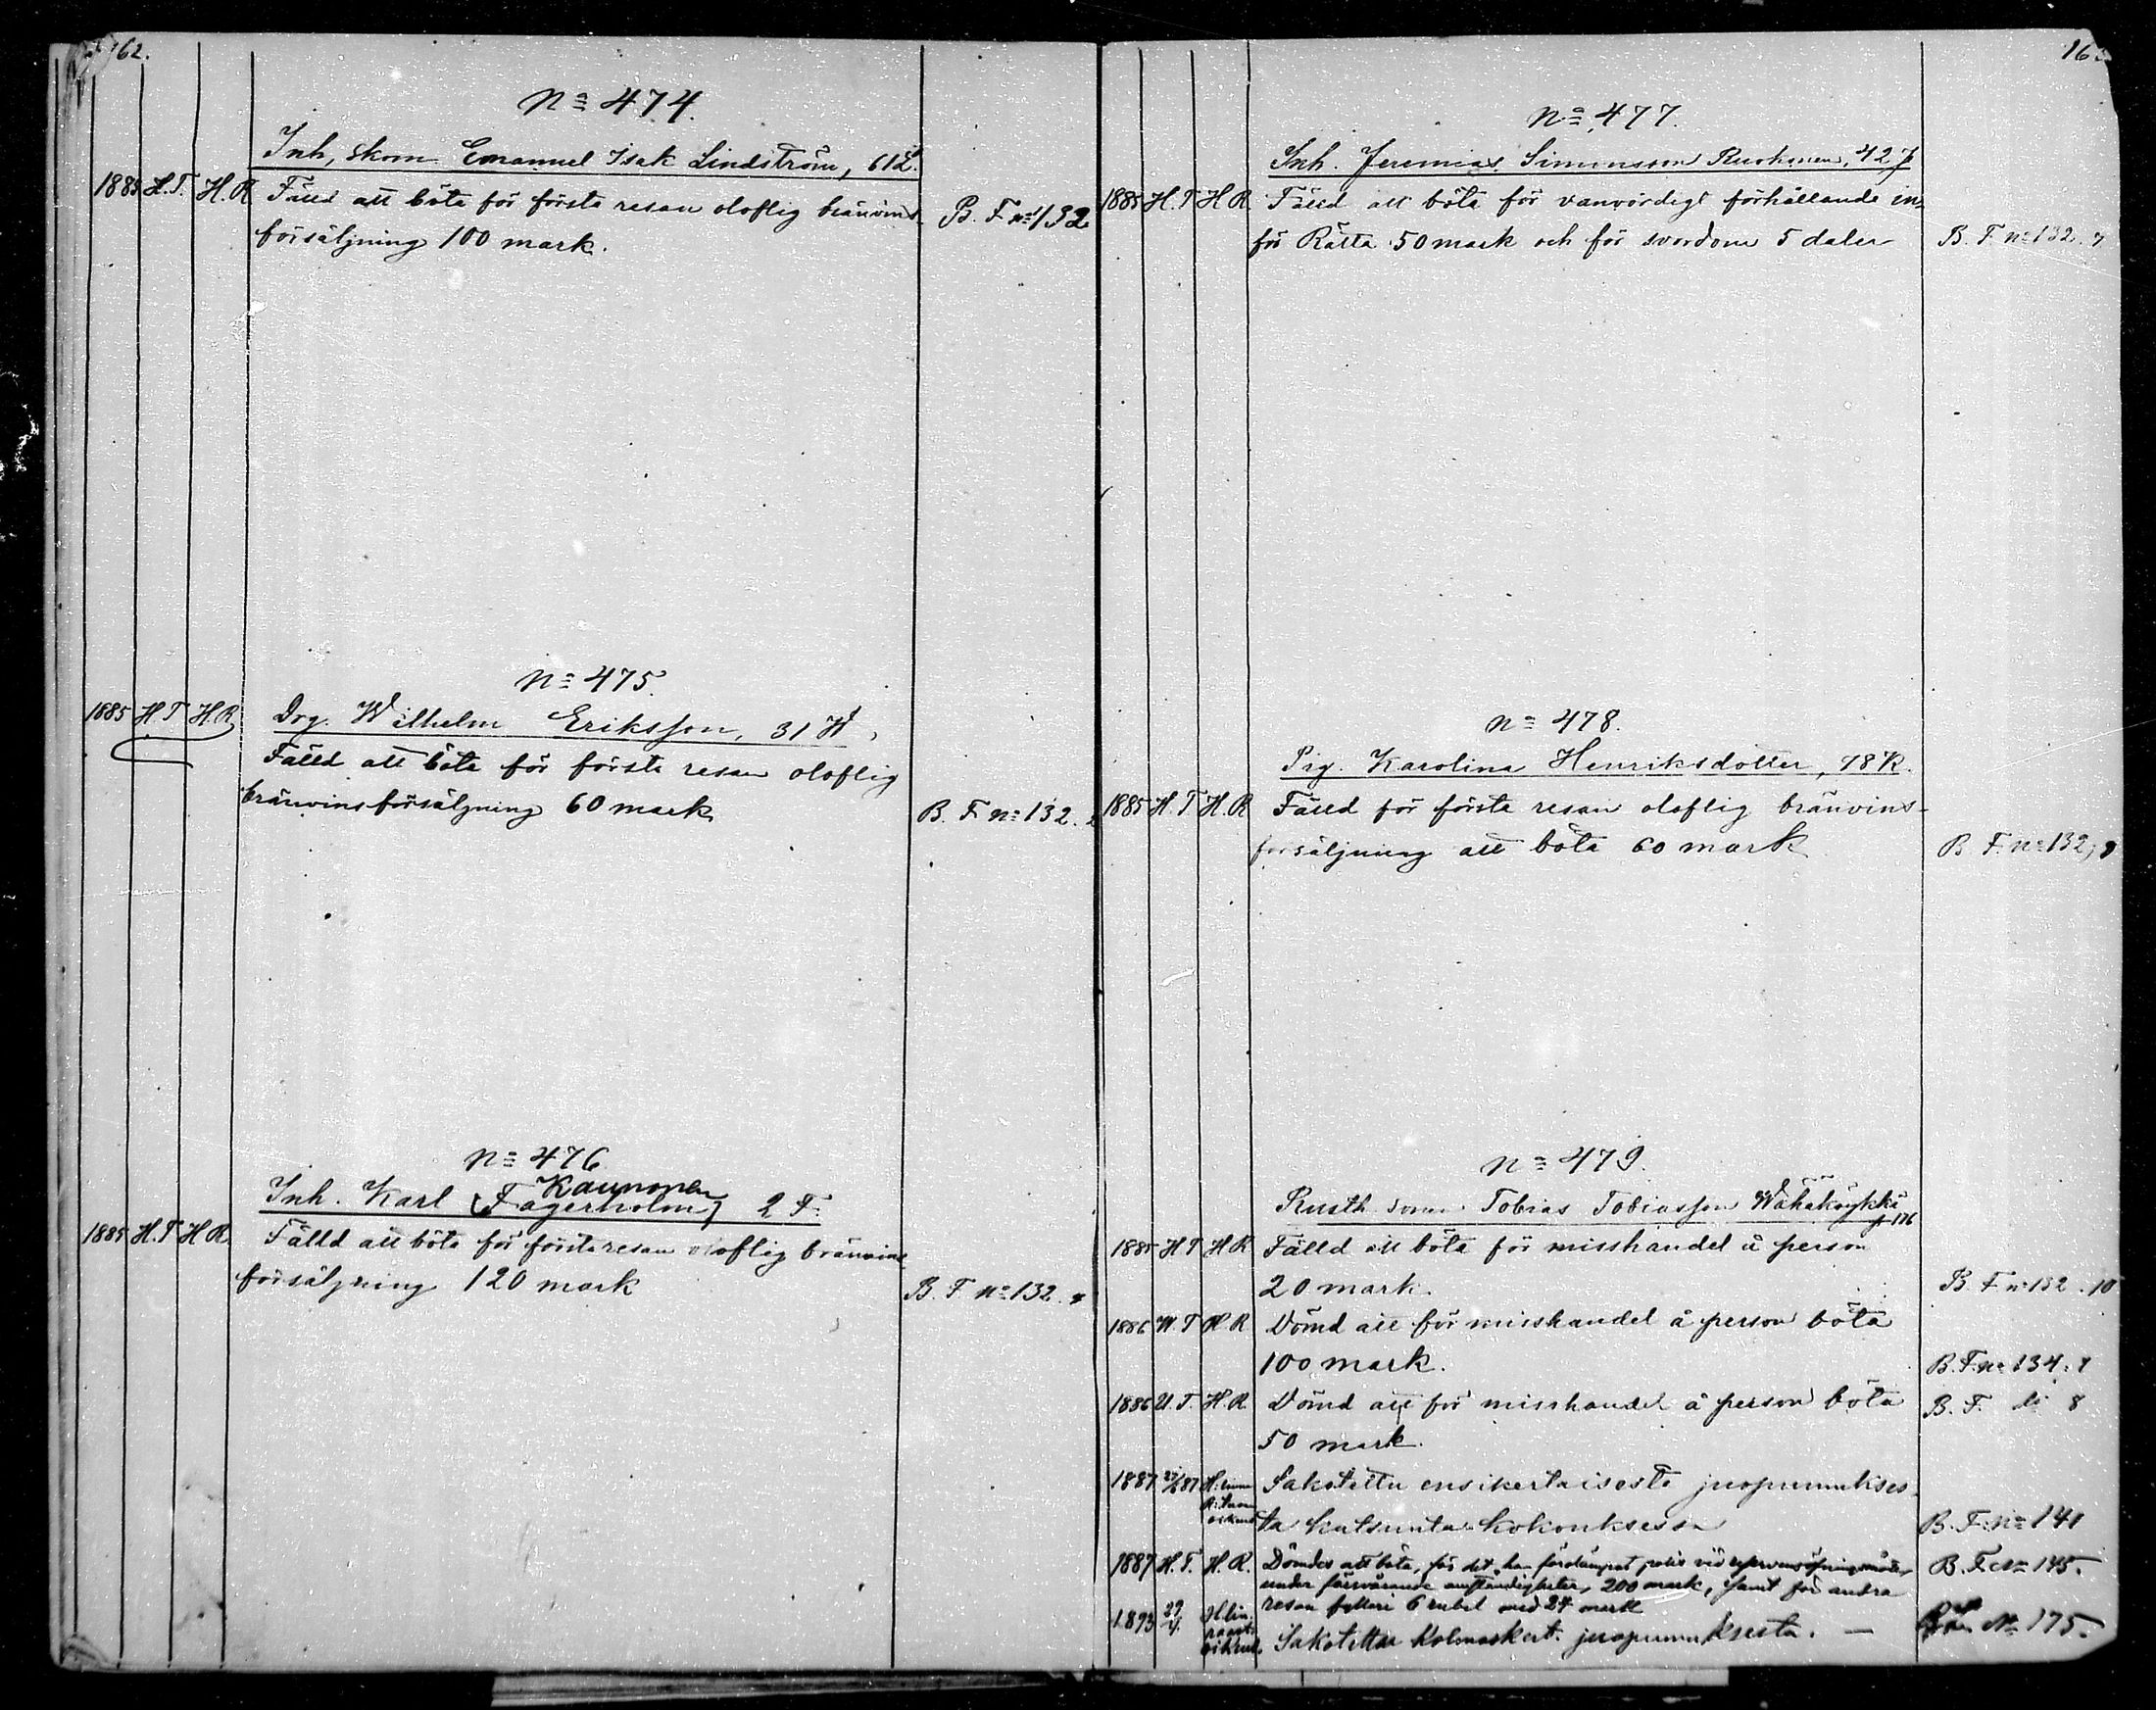 162.
No 474.
Inh, skom Emanuel Isak Lindström, 61 L.
1885 H.T. H.R. Fälld att böta för första resan oloflig bränvins-
försäljning 100 mark.
B. F. No 132
No 475.
1885 H.T H.R
Drg. Wilhelm Eriksson, 31 H.
Fälld att böta för första resan oloflig
bränvinsförsäljning 60 mark
B. F. No 132.
No 476
Kaunonen
Inh. Karl [Fagerholm] 2 F.
1885 H.T H.R. Fälld att böta för första resan oloflig bränvins
försäljning 120 mark
B. F. No 132.
16
No 477.
Inh. Jeremias Simonsson Ruohonen, 42 J
1885 H.T H.R. Fälld att böta för vanvördigt förhållande in-
för Rätta 50 mark och för svordom 5 daler
B. F. No 132. 7
No 478.
Pig. Karolina Henriksdotter, 18 K.
1885 H.T H.R Fälld för första resan oloflig bränvins-
försäljning att böta 60 mark
B F. No 132,
No 479.
Rusth. sonen Tobias Tobiasson Wähäköykkä
1885 H T H R Fälld att böta för misshandel å person
20 mark.
B. F. No 132. 10
1886 W. T H R Dömd att för misshandel å person böta
100 mark.
B. F. No 134.
1886 U. T. H. R. Dömd att för misshandel å person böta
B. F. 8
50 mark.
1887 Sakotettu ensikertaisesta juopumukses-
ta katsunta kokouksessa
B. F. No 141
1887 H. T. H. R. Dömdes att böta, för det han
under försvårande omständigheter, 200 mark, samt för andra
resan fylleri 6 rubel med 24 mark
B. F. No 145.
1893 Sakotettu kolmaskert. juopumuksesta. —
No 175.